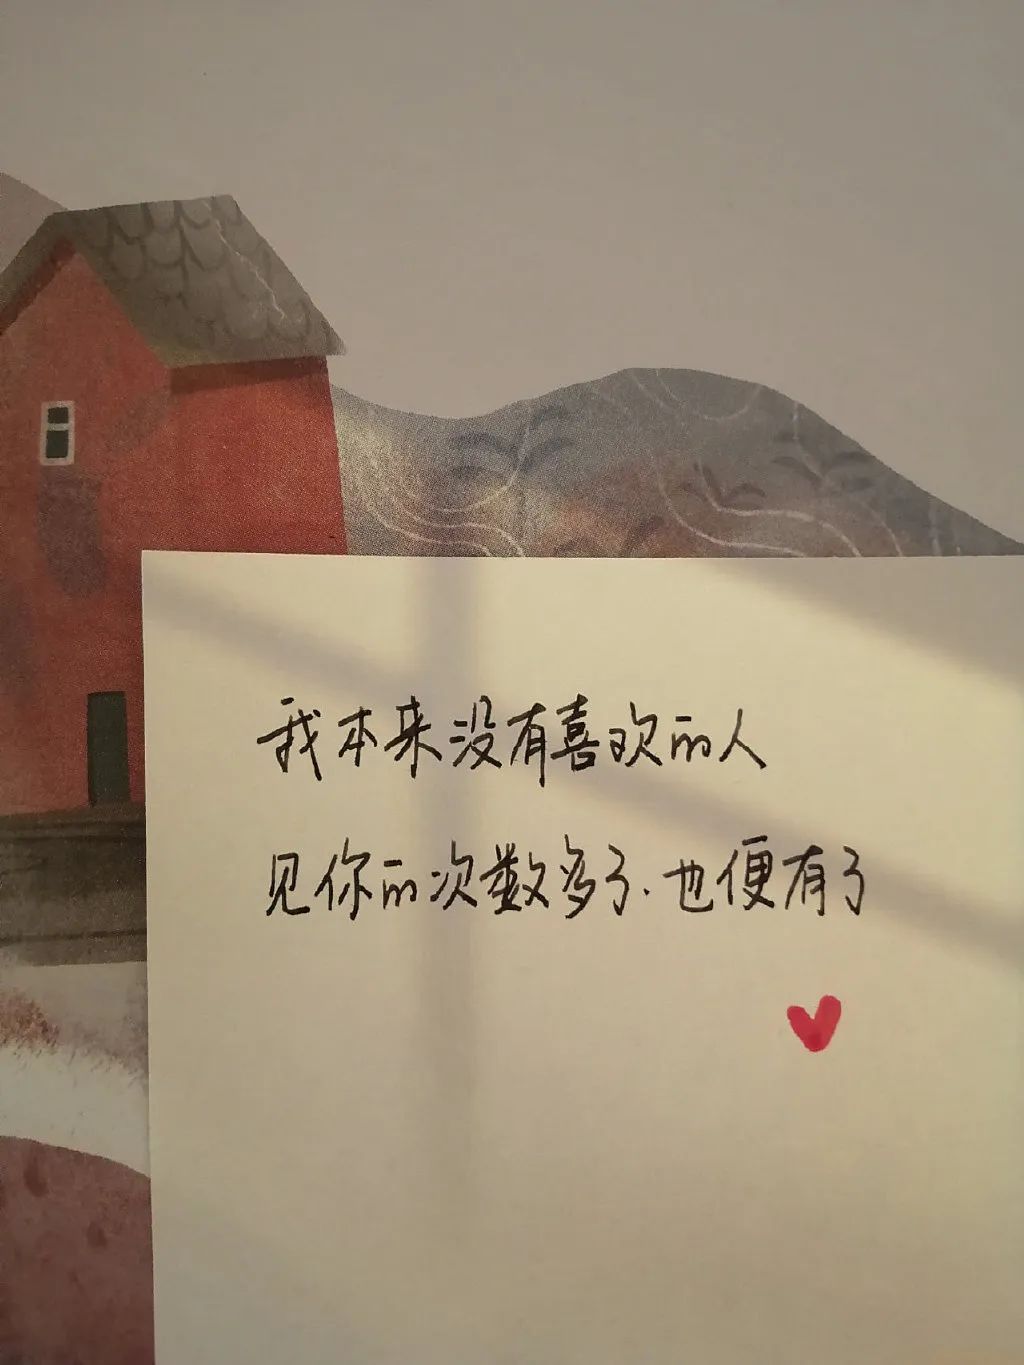 我本来没有喜欢的人
见你的次数多了.也便有了